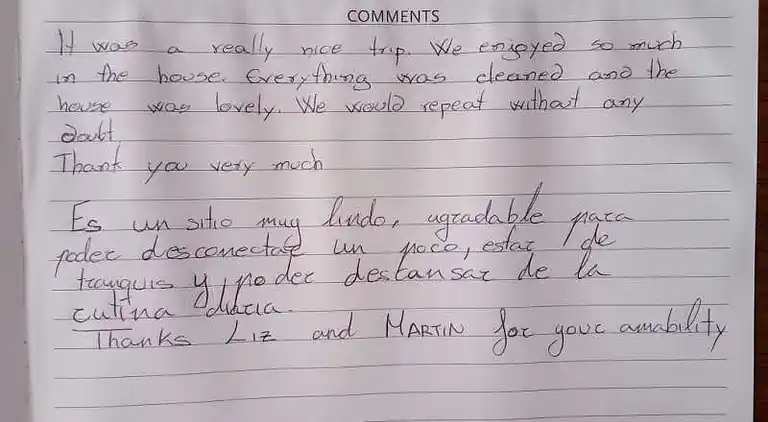 COMMENTS
It was a really nice trip. We enjoyed so much
in the house. Everything was cleaned and the
house was lovely. We would repeat without any
doubt
Thank you very much
Es un sitio muy lindo, agradable para
poder desconectase un poco, estar de
tranquis y poder descansar de la
rutina diaria.
Thanks Liz and MARTIN for your amability